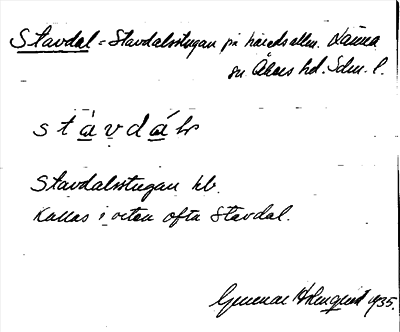 Stavdal = Stavdalsstugan på häradsallm. Länna
sn Åkers hd. Sdm. l.
stàvdáls
Stavdalsstugan kb.
Kallas i orten ofta Stavdal.
Gunnar Holmquist 1935.